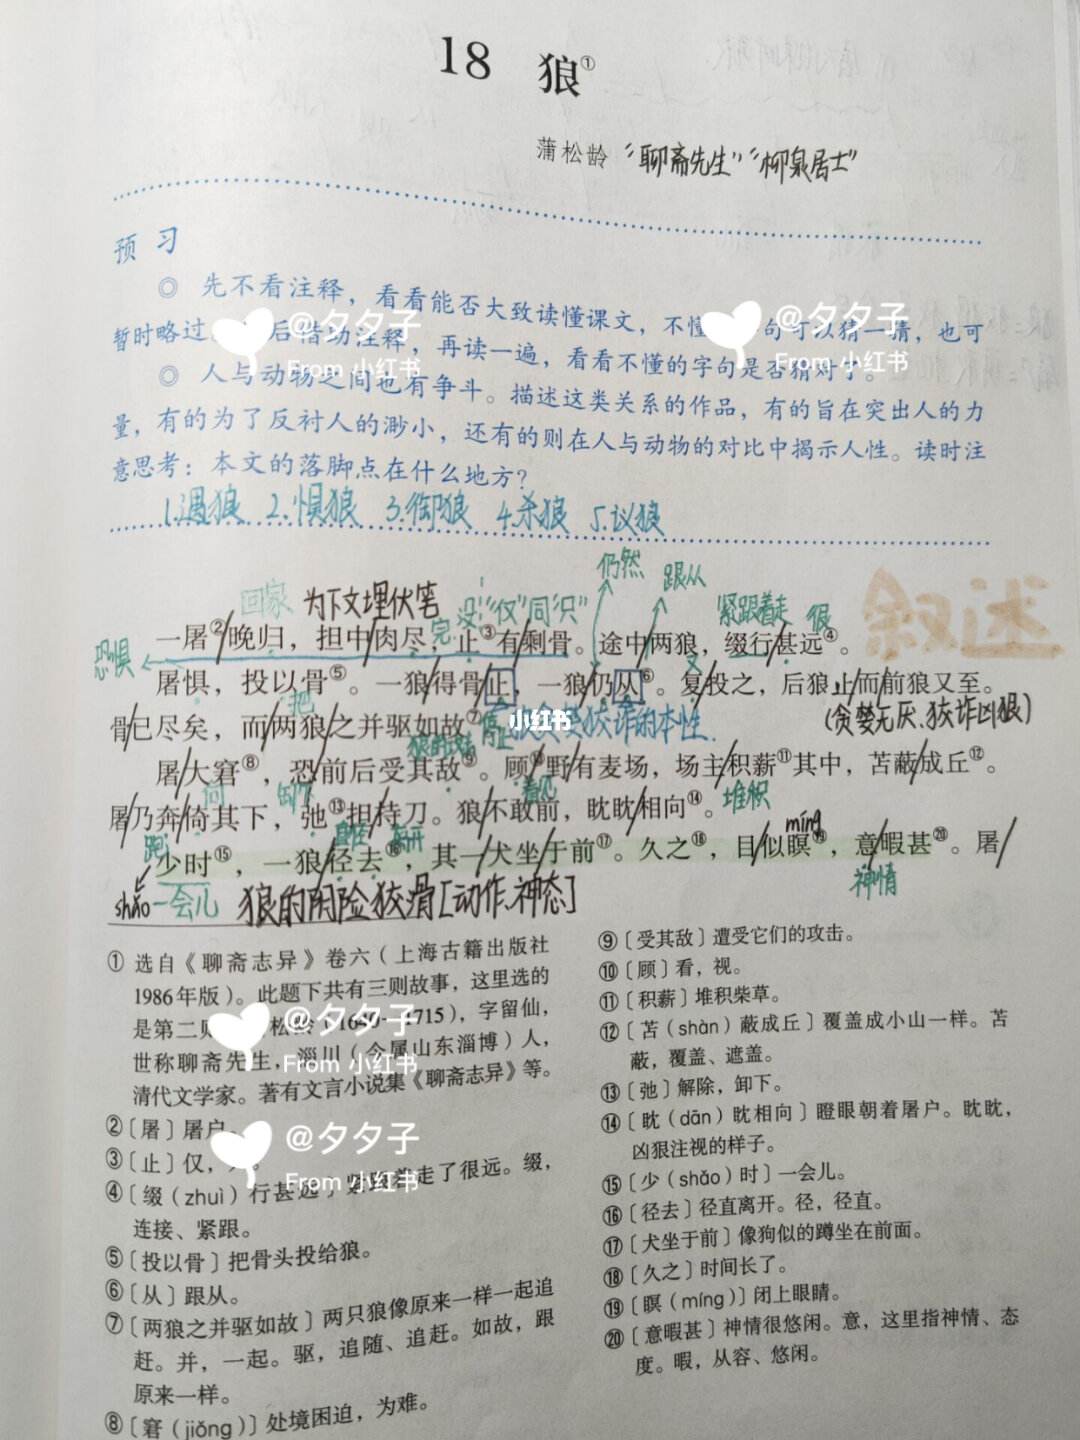 18 狼①
蒲松龄 “聊斋先生” “柳泉居士”
预习
◎ 先不看注释，看看能否大致读懂课文，不懂 句可以猜一猜，也可
暂时略过。 后借助注释，再读一遍，看看不懂的字句是否猜对了。
◎ 人与动物之间也有争斗。描述这类关系的作品，有的旨在突出人的力
量，有的为了反衬人的渺小，还有的则在人与动物的对比中揭示人性。读时注
意思考：本文的落脚点在什么地方？
1.遇狼 2.惧狼 3.御狼 4.杀狼 5.议狼
仍然 跟从
回家 为下文埋伏笔 没! “仅”同“只” 紧跟着走 很
完
叙述
一屠②晚归，担中肉尽，止③有剩骨。途中两狼，缀行甚远④。
恐惧
又
屠惧，投以骨⑤。一狼得骨止，一狼仍从⑥。复投之，后狼止而前狼又至。
把
骨已尽矣，而两狼之并驱如故⑦。
停止
狡诈的本性.
(贪婪无厌、狡诈凶狠)
小红书
屠大窘⑧，恐前后受其敌⑨。顾⑩野有麦场，场主积薪⑪其中，苫蔽成丘⑫。
看见
卸下
堆积
屠乃奔倚其下，弛⑬担持刀。狼不敢前，眈眈相向⑭。
跑
离开
míng
少时⑮，一狼径去⑯，其一犬坐于前⑰。久之⑱，目似瞑⑲，意暇甚⑳。屠
神情
shǎo 一会儿 狼的阴险狡滑[动作、神态]
① 选自《聊斋志异》卷六（上海古籍出版社
1986年版）。此题下共有三则故事，这里选的
是第二则 松龄（1640—1715），字留仙，
世称聊斋先生，淄川（今属山东淄博）人，
清代文学家。著有文言小说集《聊斋志异》等。
②〔屠〕屠户。
③〔止〕仅，
④〔缀（zhuì）行甚远〕 走了很远。缀，
连接、紧跟。
⑤〔投以骨〕把骨头投给狼。
⑥〔从〕跟从。
⑦〔两狼之并驱如故〕两只狼像原来一样一起追
赶。并，一起。驱，追随、追赶。如故，跟
原来一样。
⑧〔窘（jiǒng）〕处境困迫，为难。
⑨〔受其敌〕遭受它们的攻击。
⑩〔顾〕看，视。
⑪〔积薪〕堆积柴草。
⑫〔苫（shàn）蔽成丘〕覆盖成小山一样。苫
蔽，覆盖、遮盖。
⑬〔弛〕解除，卸下。
⑭〔眈（dān）眈相向〕瞪眼朝着屠户。眈眈，
凶狠注视的样子。
⑮〔少（shǎo）时〕一会儿。
⑯〔径去〕径直离开。径，径直。
⑰〔犬坐于前〕像狗似的蹲坐在前面。
⑱〔久之〕时间长了。
⑲〔瞑（míng）〕闭上眼睛。
⑳〔意暇甚〕神情很悠闲。意，这里指神情、态
度。暇，从容、悠闲。
@夕夕子
From 小红书
@夕夕子
From 小红书
@夕夕子
From 小红书
@夕夕子
From 小红书